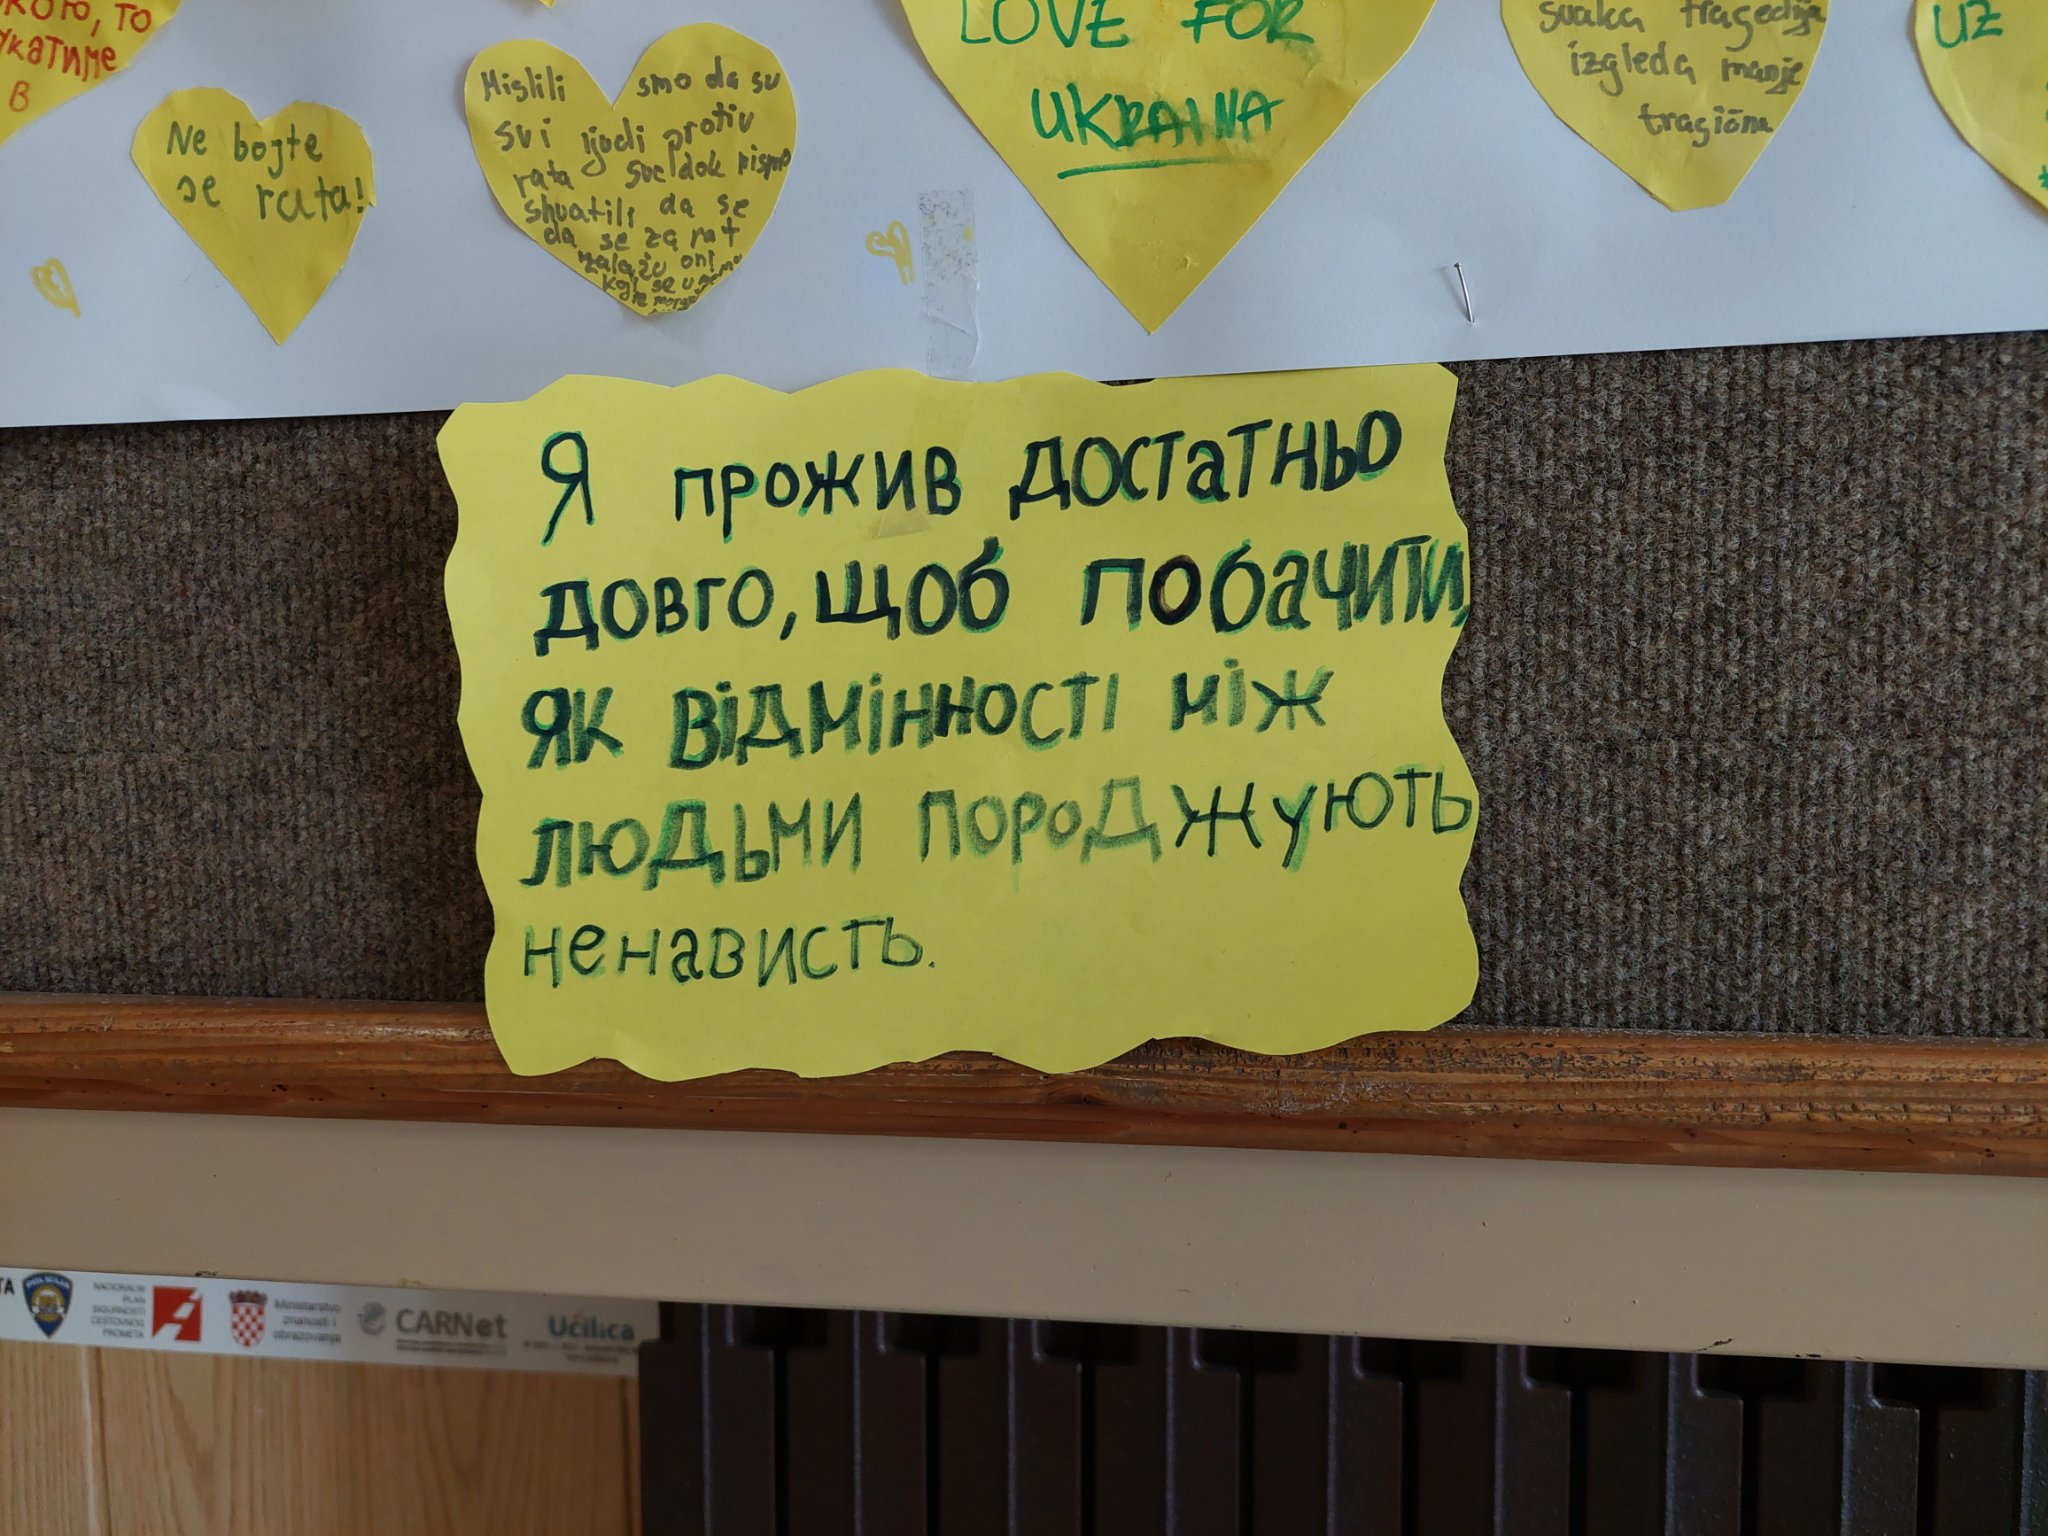 кою, то
укатиме
в
Ne bojte
se rata!
Mislili smo da su
svi ljudi protiv
rata sve dok nismo
shvatili da se
da se za rat
zalažu oni
koji se u
ne moraju
LOVE FOR
UKRAINA
svaka tragedija
izgleda manje
tragična
UZ
Я прожив достатньо
довго, щоб побачити,
як відмінності між
людьми породжують
ненависть.
TA
NACIONALNI
PLAN
SIGURNOSTI
CESTOVNOG
PROMETA
Ministarstvo
znanosti i
obrazovanja
CARNet
Učilica